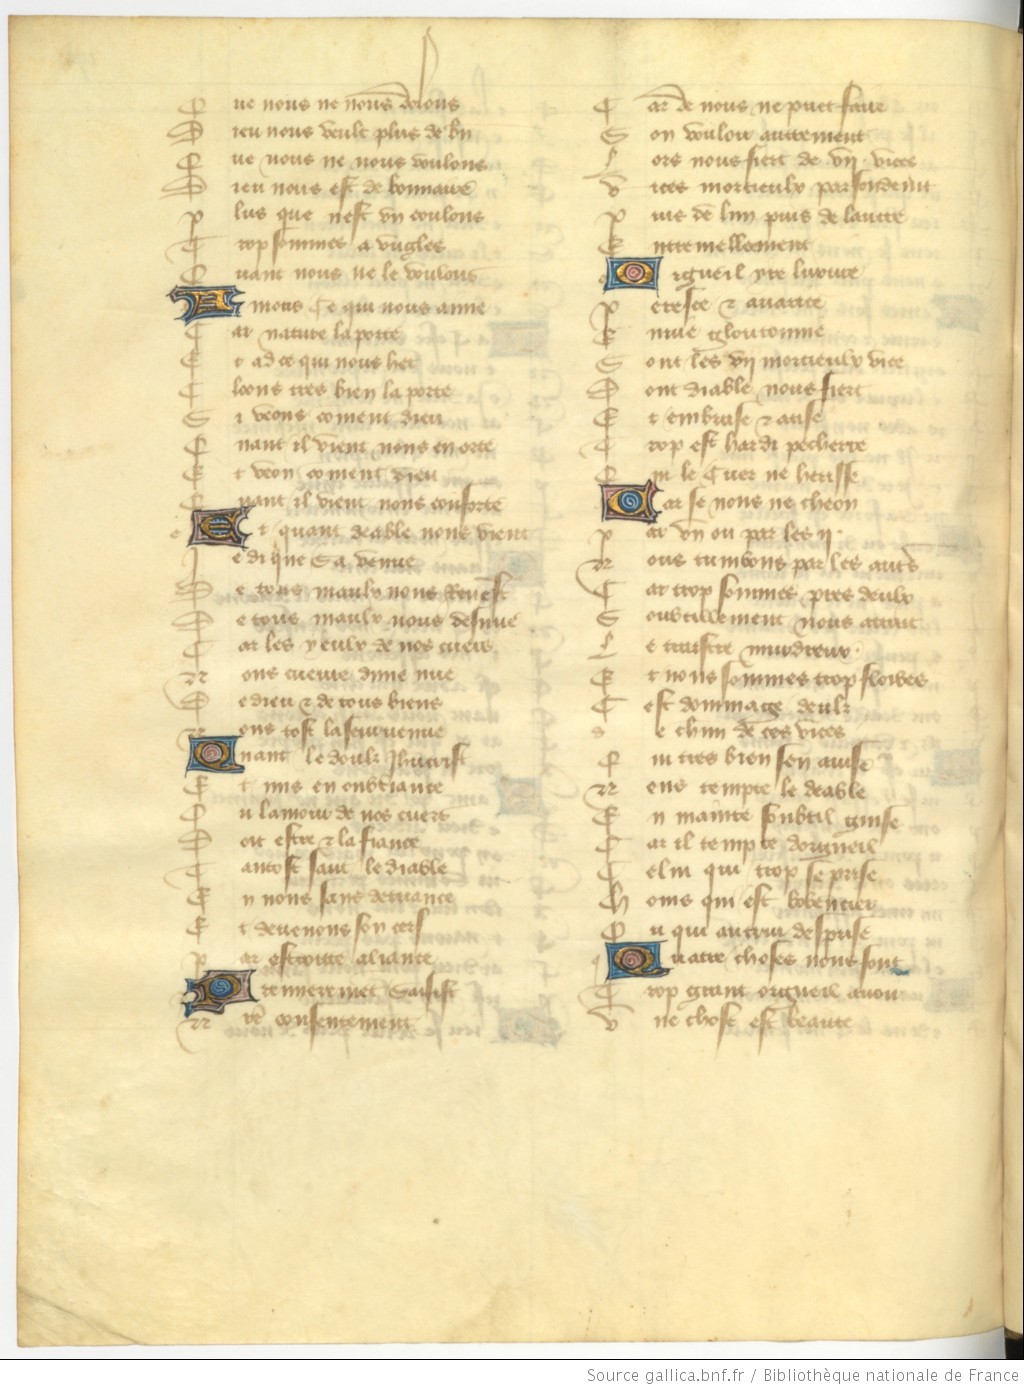 Que nous ne nous dolons
Dieu nous veult plus de bn
Que nous ne nous voulons
Dieu nous est de bonnaire
Plus que nest vn coulons
Trop sommes a vugles
Quant nous ne le voulons
Amons Ce qui nous aime
Car nature la porte
Et ad ce qui nous het
Cloons tres bien la porte
Si veons coment dieu
Quant il vient nous en orte
Et veon coment dieu
Quant il vient nous conforte
Et quant deable nous vient
Je di que Sa venue
De tous maulx nous
De tous maulx nous desnue
Car les yeulx de nos cuers
Nous cueuure dune nue
De dieu & de tous biens
Nous tost la seurvenue
Quant le doulz Jhucrist
Et mis en oubliance
Ou lamour de nos cuers
Doit estre & la fiance
Tantost saut le diable
En nous sans detriance
Et deuenons son cerf
Par estroitte aliance
Premierement Saisist
Nre consentement
Car de nous ne puet faire
Son vouloir autrement
Lors nous fiert de vij vices
Vices mortieulx parfondemt
Puis de lun puis de lautre
Entremellement
Orgueil yre luxure
Peresce & auarice
Enuie gloutonnie
Sont les vij mortieulx vice
Dont diable nous fiert
Et embrase & atise
Trop est hardi pecherre
Qui le Cuer ne herisse
Car se nous ne cheon
Par vn ou par les ij
Nous tumbons par les autres
Car trop sommes pres deulx
Soubtillement nous atrait
Le traistre murdreux
Et nous sommes trop floibes
Cest dommage deulz
De chun de ces vices
Qui tres bien sen auise
Nous tempte le deable
En mainte soubtil guise
Car il tempte dorgueil
Celui qui trop se prise
Homs qui est bobencier
Ou qui autrui desprise
Quatre choses nous font
Trop grant orgueil auoir
Vne chose est beaute
Source gallica.bnf.fr / Bibliothèque nationale de France